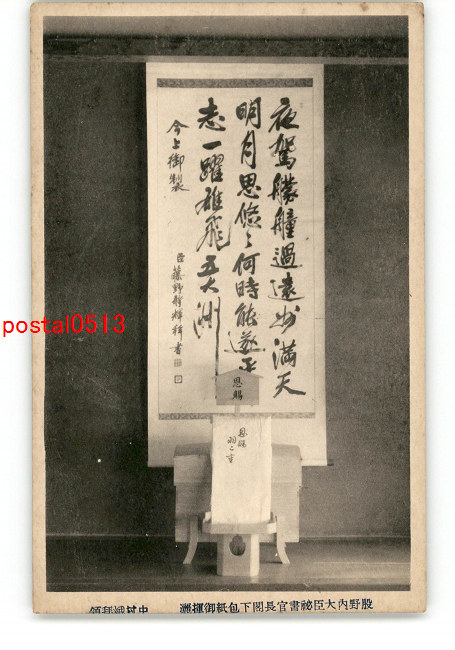 夜駕艨艟過遠州満天
明月思悠々何時能遂平
志一躍雄飛五大洲
今上御製
臣藤野静輝書
恩賜
恩賜
羽二重
postal0513
股野內大臣祕書官長閣下包紙御揮灑